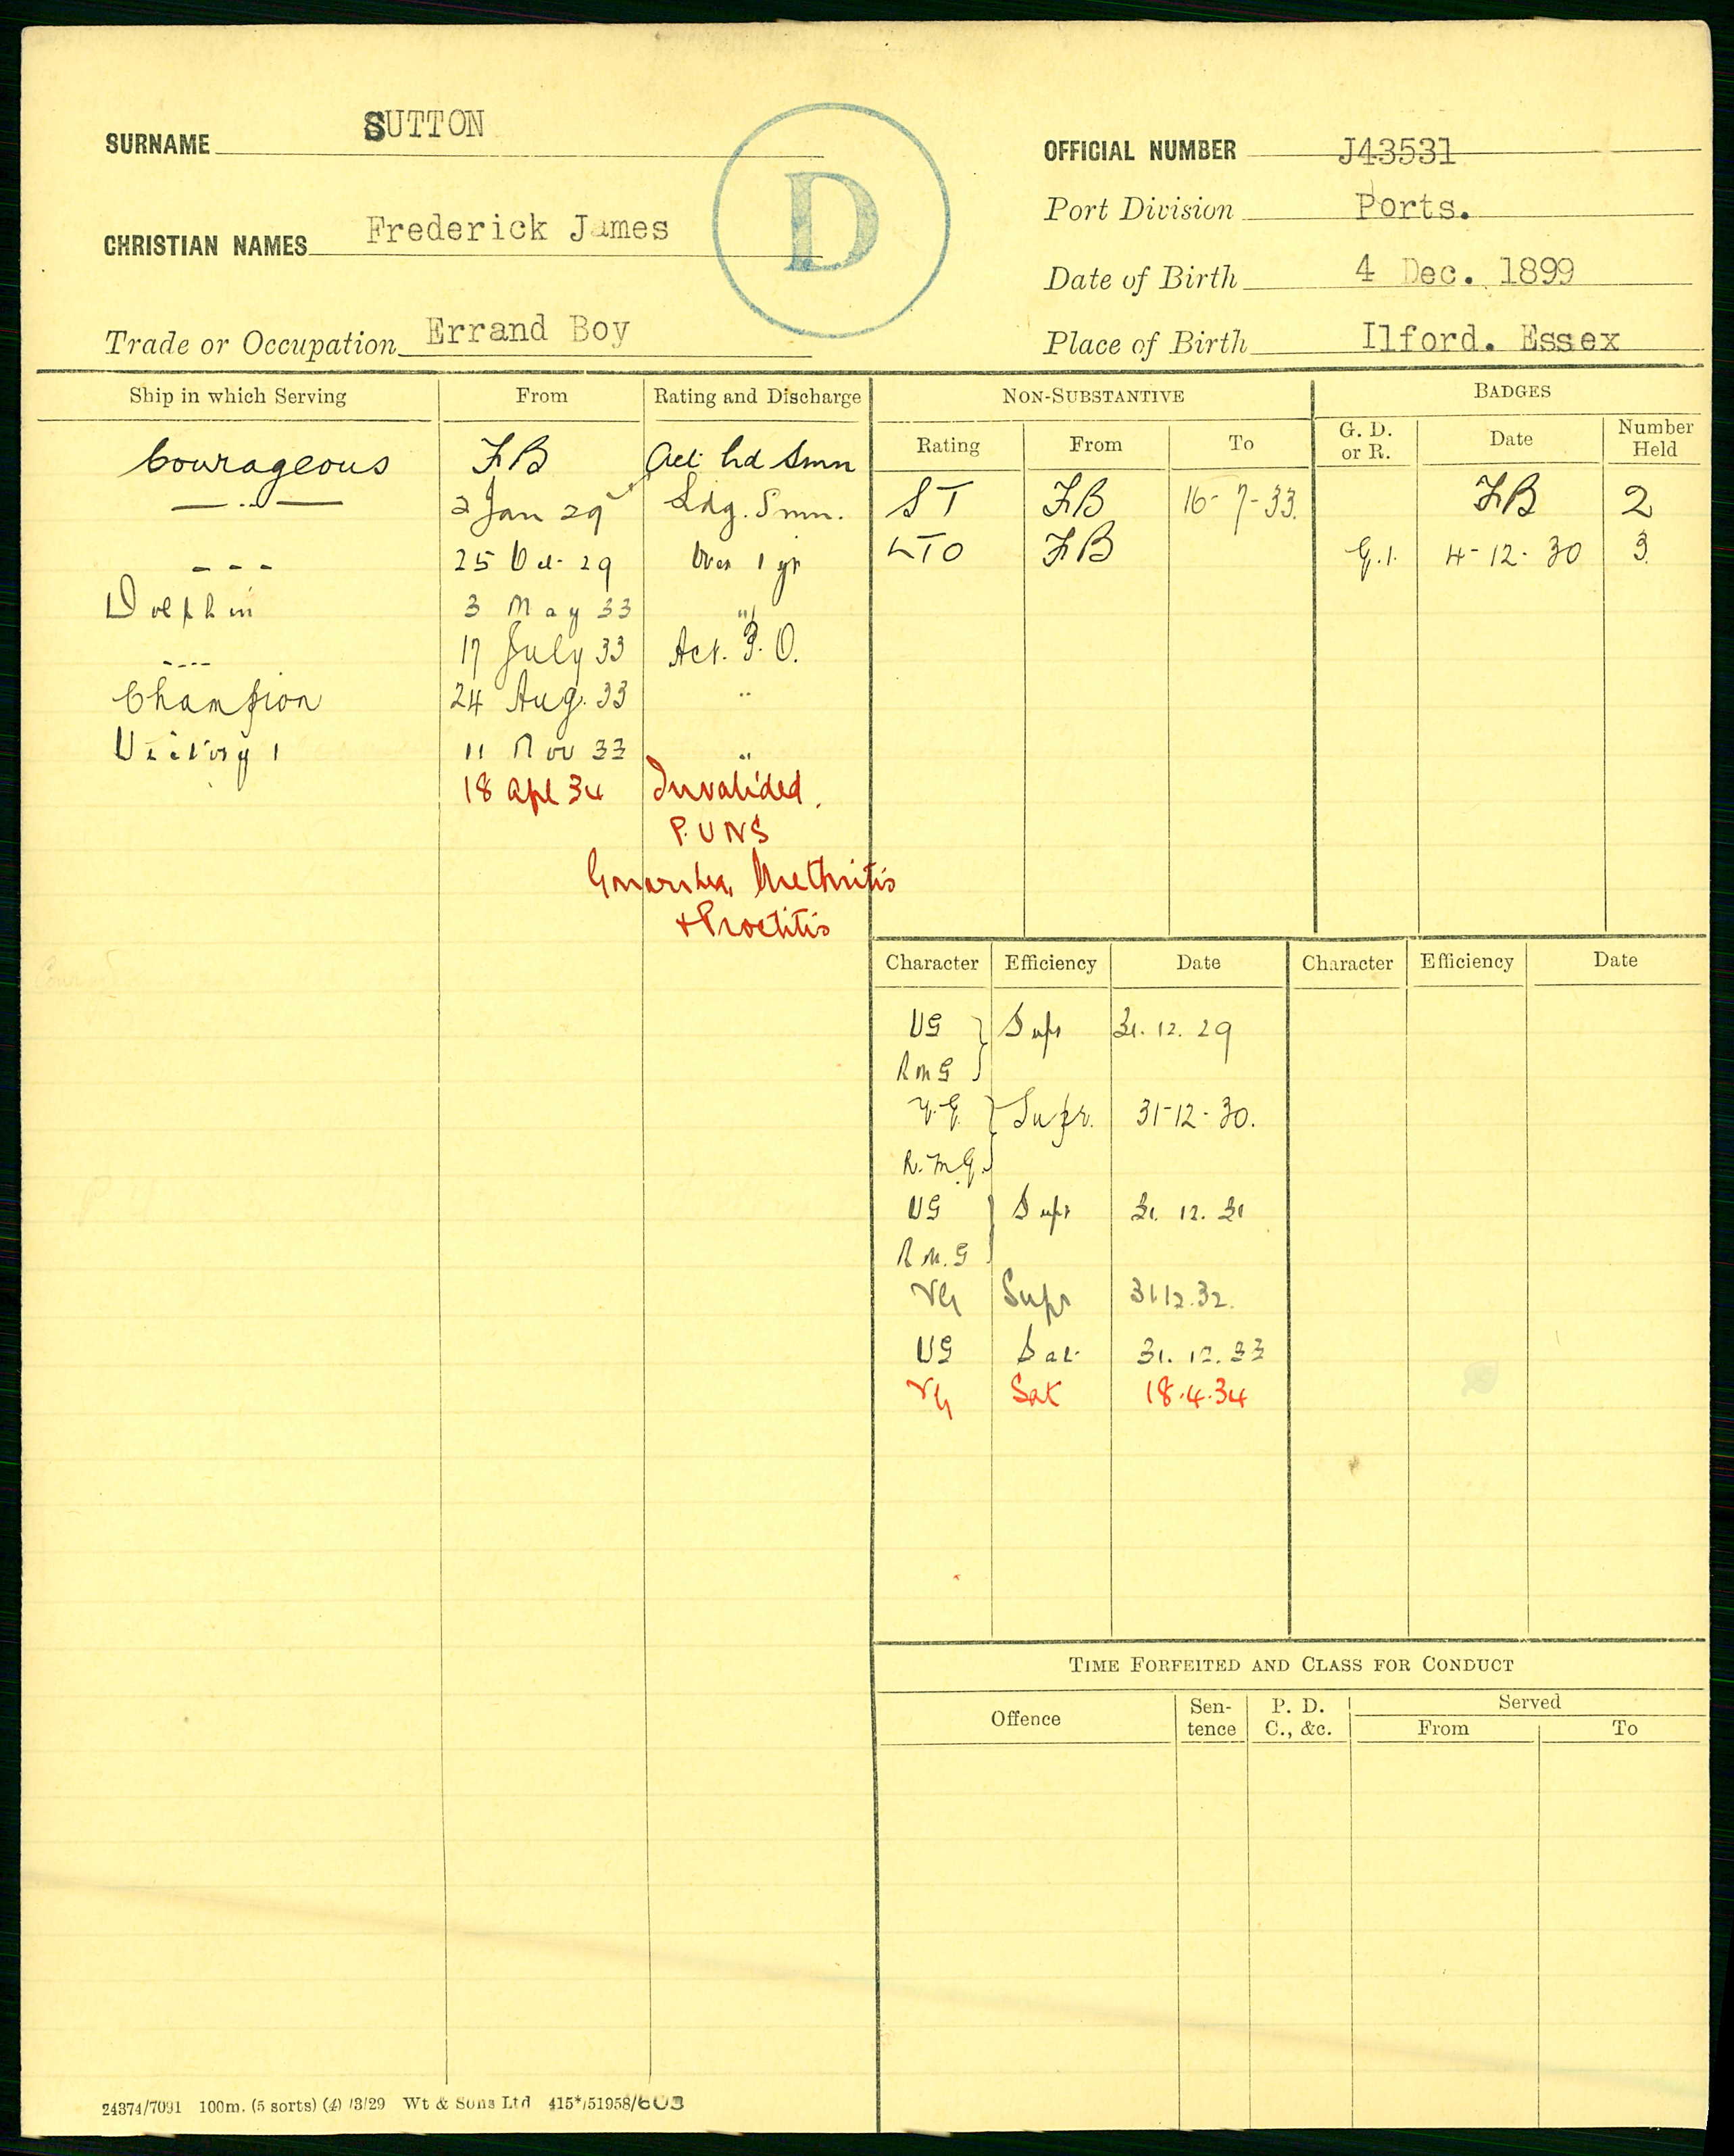 SURNAME SUTTON
CHRISTIAN NAMES Frederick James
Trade or Occupation Errand Boy
D
OFFICIAL NUMBER J43531
Port Division Ports.
Date of Birth 4 Dec. 1899
Place of Birth Ilford. Essex
Ship in which Serving From Rating and Discharge
Courageous FB Act Ld Smn
— .. — 2 Jan 29 Ldg. Smn.
- - - 25 Oct 29 Over 1 yr
Dolphin 3 May 33 "
---- 17 July 33 Act. P.O.
Champion 24 Aug. 33 "
Victory 1 11 Nov 33 "
18 Apl 34 Invalided.
P.UNS
Gonorrhea, Urethritis
& Proctitis
NON-SUBSTANTIVE
Rating From To
ST FB 16-7-33.
LTO FB
BADGES
G. D. or R. Date Number Held
FB 2
G.1. 4-12-30 3
Character Efficiency Date Character Efficiency Date
VG } Supr 31.12.29
RMG
V.G. } Supr. 31-12-30.
R.M.G.
VG } Supr 31.12.31
R.M.G
VG Supr 31.12.32.
VG Sat 31.12.33
VG Sat 18.4.34
TIME FORFEITED AND CLASS FOR CONDUCT
Offence Sen-tence P. D. C., &c. Served
From To
24374/7091 100m. (5 sorts) (4) /3/29 Wt & Sons Ltd 415*/51958/603